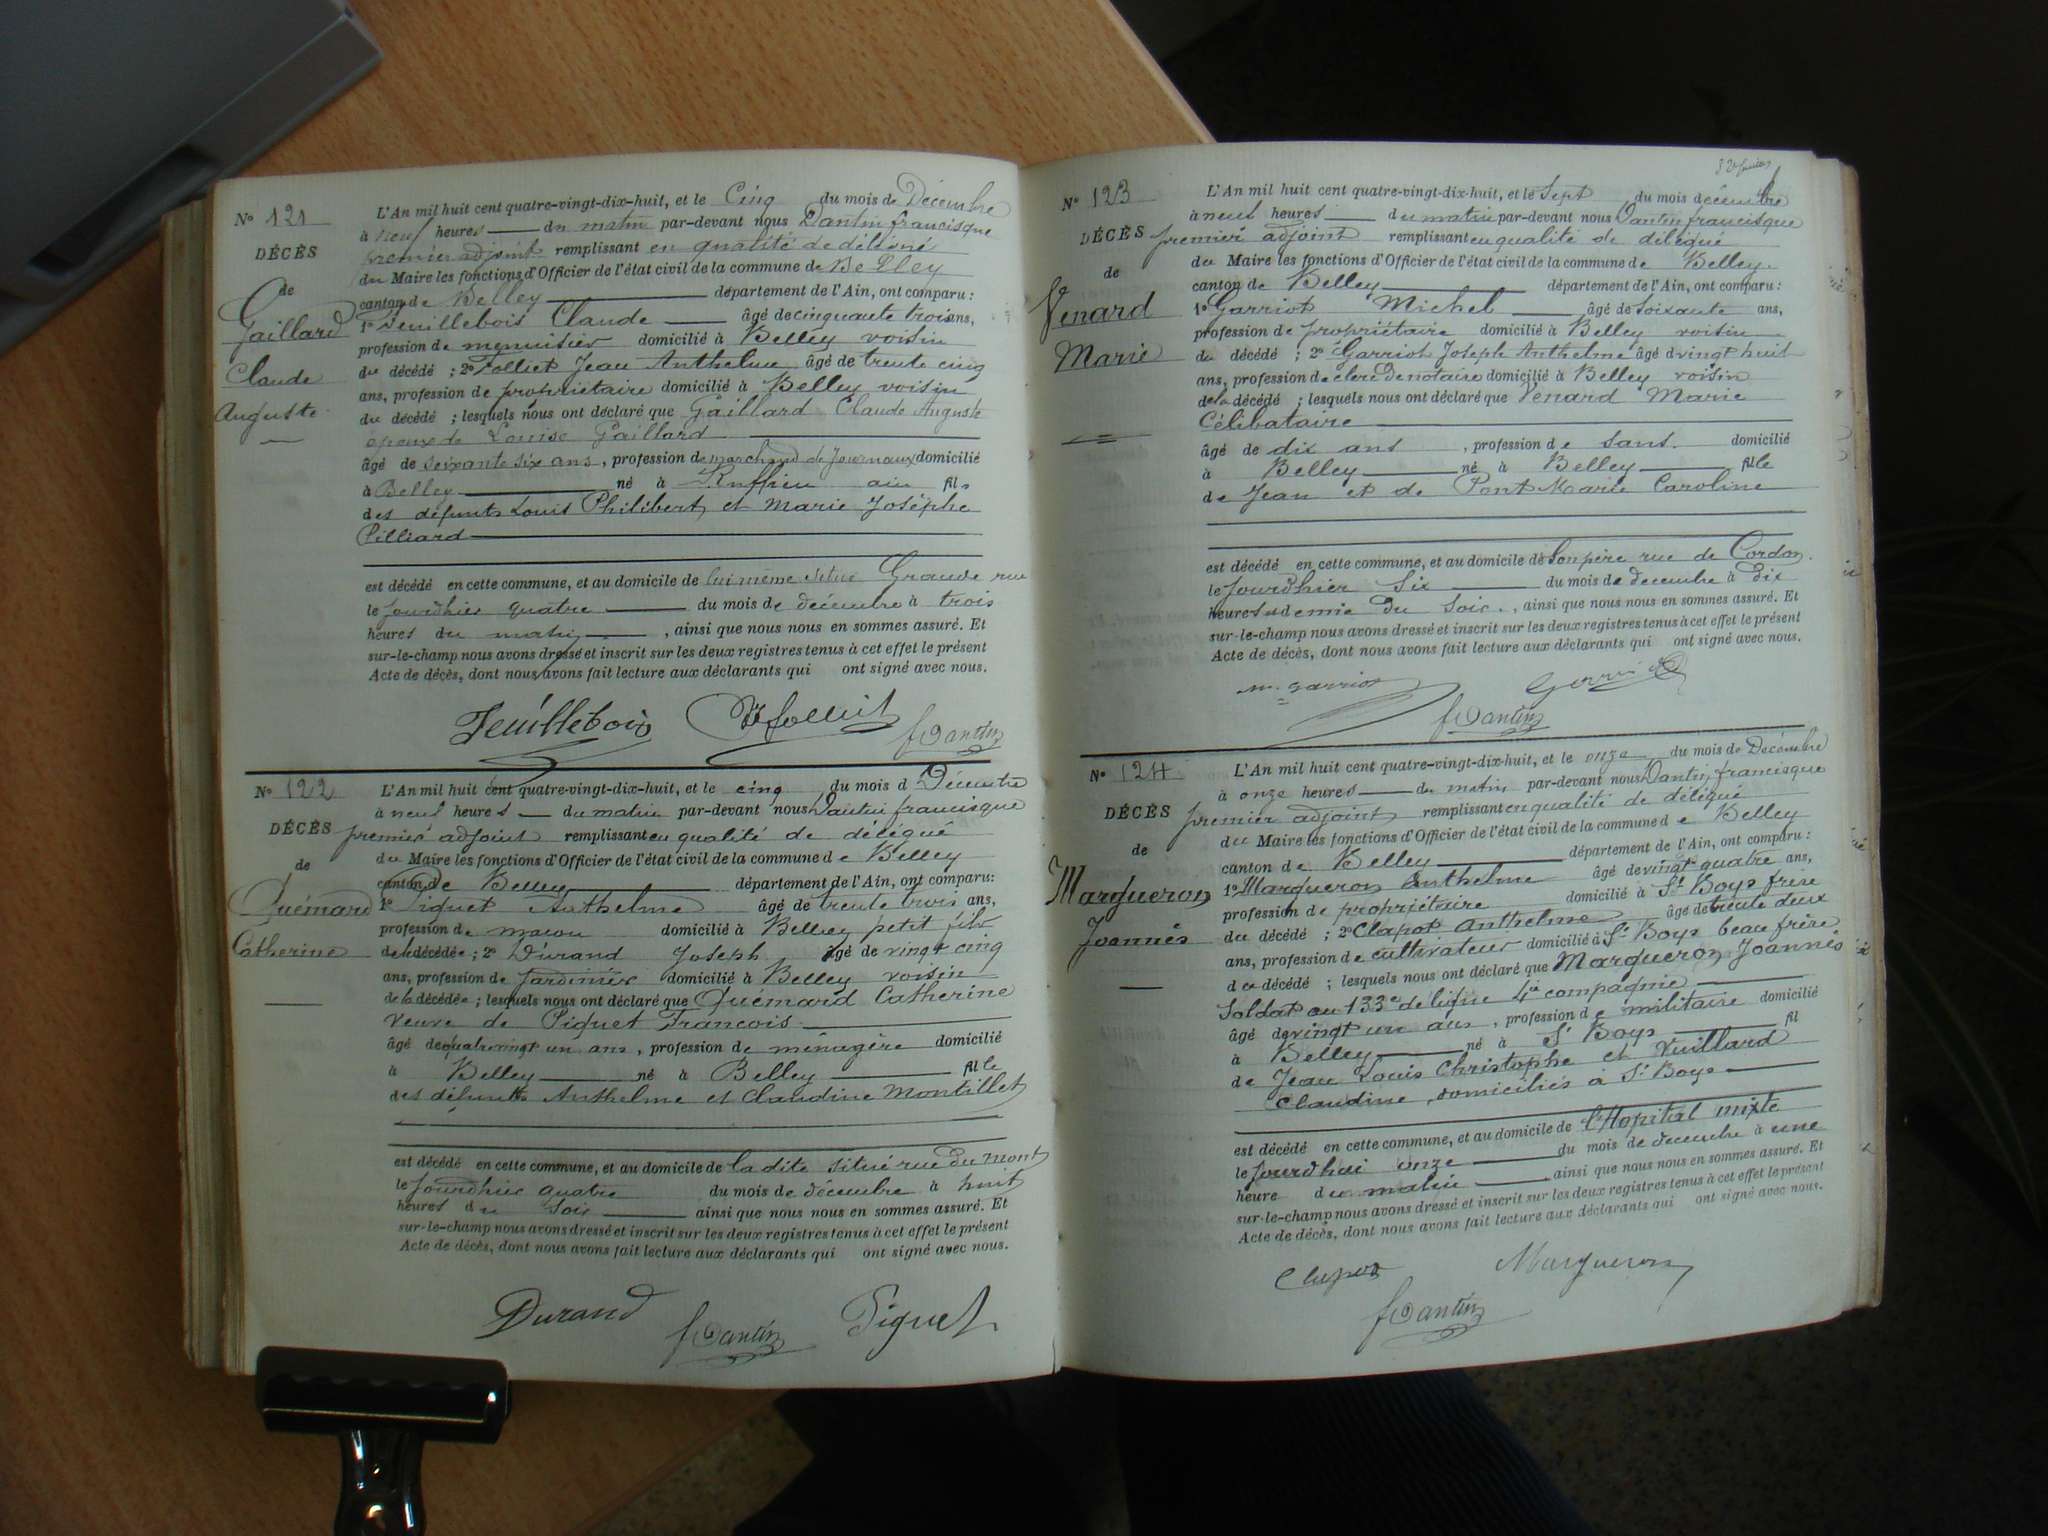 N° 121
DÉCÈS
de
Gaillard
Claude
Auguste
L'An mil huit cent quatre-vingt-dix-huit, et le Cinq du mois de Décembre
à neuf heures du matin par-devant nous Dantin francisque
premier adjoint remplissant en qualité de délégué
du Maire les fonctions d'Officier de l'état civil de la commune de Belley
canton de Belley département de l'Ain, ont comparu :
1° Feuillebois Claude âgé de cinquante trois ans,
profession de menuisier domicilié à Belley voisin
du décédé ; 2° Folliet Jean Anthelme âgé de trente cinq
ans, profession de propriétaire domicilié à Belley voisin
du décédé ; lesquels nous ont déclaré que Gaillard Claude Auguste
époux de Louise Gaillard
âgé de soixante six ans, profession de marchand de Journaux domicilié
à Belley né à Ruffieu ain fils
des défunts Louis Philibert et Marie Josephe
Pilliard
est décédé en cette commune, et au domicile de lui même situé Grande rue
le jourdhier quatre du mois de décembre à trois
heures du matin, ainsi que nous nous en sommes assuré. Et
sur-le-champ nous avons dressé et inscrit sur les deux registres tenus à cet effet le présent
Acte de décès, dont nous avons fait lecture aux déclarants qui ont signé avec nous.
Feuillebois folliet f Dantin
N° 122
DÉCÈS
de
Quémard
Catherine
L'An mil huit cent quatre-vingt-dix-huit, et le cinq du mois d Décembre
à neuf heures du matin par-devant nous Dantin francisque
premier adjoint remplissant en qualité de délégué
du Maire les fonctions d'Officier de l'état civil de la commune de Belley
canton de Belley département de l'Ain, ont comparu :
1° Piquet Anthelme âgé de trente trois ans,
profession de macon domicilié à Belley petit fils
de la décédée ; 2° Durand Joseph âgé de vingt cinq
ans, profession de Jardinier domicilié à Belley voisin
de la décédée ; lesquels nous ont déclaré que Quémard Catherine
Veuve de Piquet François
âgé de quatre vingt un ans, profession de ménagère domicilié
à Belley né à Belley fille
des défunts Anthelme et Claudine Montillet
est décédé en cette commune, et au domicile de la dite situé rue du Mont
le jourdhier quatre du mois de décembre à huit
heures du soir ainsi que nous nous en sommes assuré. Et
sur-le-champ nous avons dressé et inscrit sur les deux registres tenus à cet effet le présent
Acte de décès, dont nous avons fait lecture aux déclarants qui ont signé avec nous.
Durand f Dantin Piquet
N° 123
DÉCÈS
de
Venard
Marie
L'An mil huit cent quatre-vingt-dix-huit, et le Sept du mois décembre
à neuf heures du matin par-devant nous Dantin francisque
premier adjoint remplissant en qualité de délégué
du Maire les fonctions d'Officier de l'état civil de la commune de Belley.
canton de Belley département de l'Ain, ont comparu :
1° Garriot Michel âgé de soixante ans,
profession de propriétaire domicilié à Belley voisin
du décédé ; 2° Garriot Joseph Anthelme âgé d vingt huit
ans, profession de clerc de notaire domicilié à Belley voisin
de la décédé ; lesquels nous ont déclaré que Venard Marie
Célibataire
âgé de dix ans, profession de sans. domicilié
à Belley né à Belley fille
de Jean et de Pont Marie Caroline
est décédé en cette commune, et au domicile de Son père rue de Cordon.
le jourdhier six du mois de decembre à dix
heures demie du soir., ainsi que nous nous en sommes assuré. Et
sur-le-champ nous avons dressé et inscrit sur les deux registres tenus à cet effet le présent
Acte de décès, dont nous avons fait lecture aux déclarants qui ont signé avec nous.
m. garriot
f Dantin
N° 124
DÉCÈS
de
Margueron
Joannés
L'An mil huit cent quatre-vingt-dix-huit, et le onze du mois de Décembre
à onze heures du matin par-devant nous Dantin francisque
premier adjoint remplissant en qualité de délégué
du Maire les fonctions d'Officier de l'état civil de la commune d e Belley
canton de Belley département de l'Ain, ont comparu :
1° Margueron Anthelme âgé de vingt quatre ans,
profession de propriétaire domicilié à St Boys frère
du décédé ; 2° Clapot Anthelme âgé de trente deux
ans, profession de cultivateur domicilié à St Boys beau frère
du décédé ; lesquels nous ont déclaré que Margueron Joannés
Soldat au 133e de ligne 4e compagnie
âgé de vingt un ans, profession de militaire domicilié
à Belley né à St Boys fil
de Jean Louis Christophe et Vuillard
Claudine, domiciliés à St Boys
est décédé en cette commune, et au domicile de l'Hopital mixte
le jourdhui onze du mois de decembre à une
heure du matin ainsi que nous nous en sommes assuré. Et
sur-le-champ nous avons dressé et inscrit sur les deux registres tenus à cet effet le présent
Acte de décès, dont nous avons fait lecture aux déclarants qui ont signé avec nous.
Clapot Margueron
f Dantin